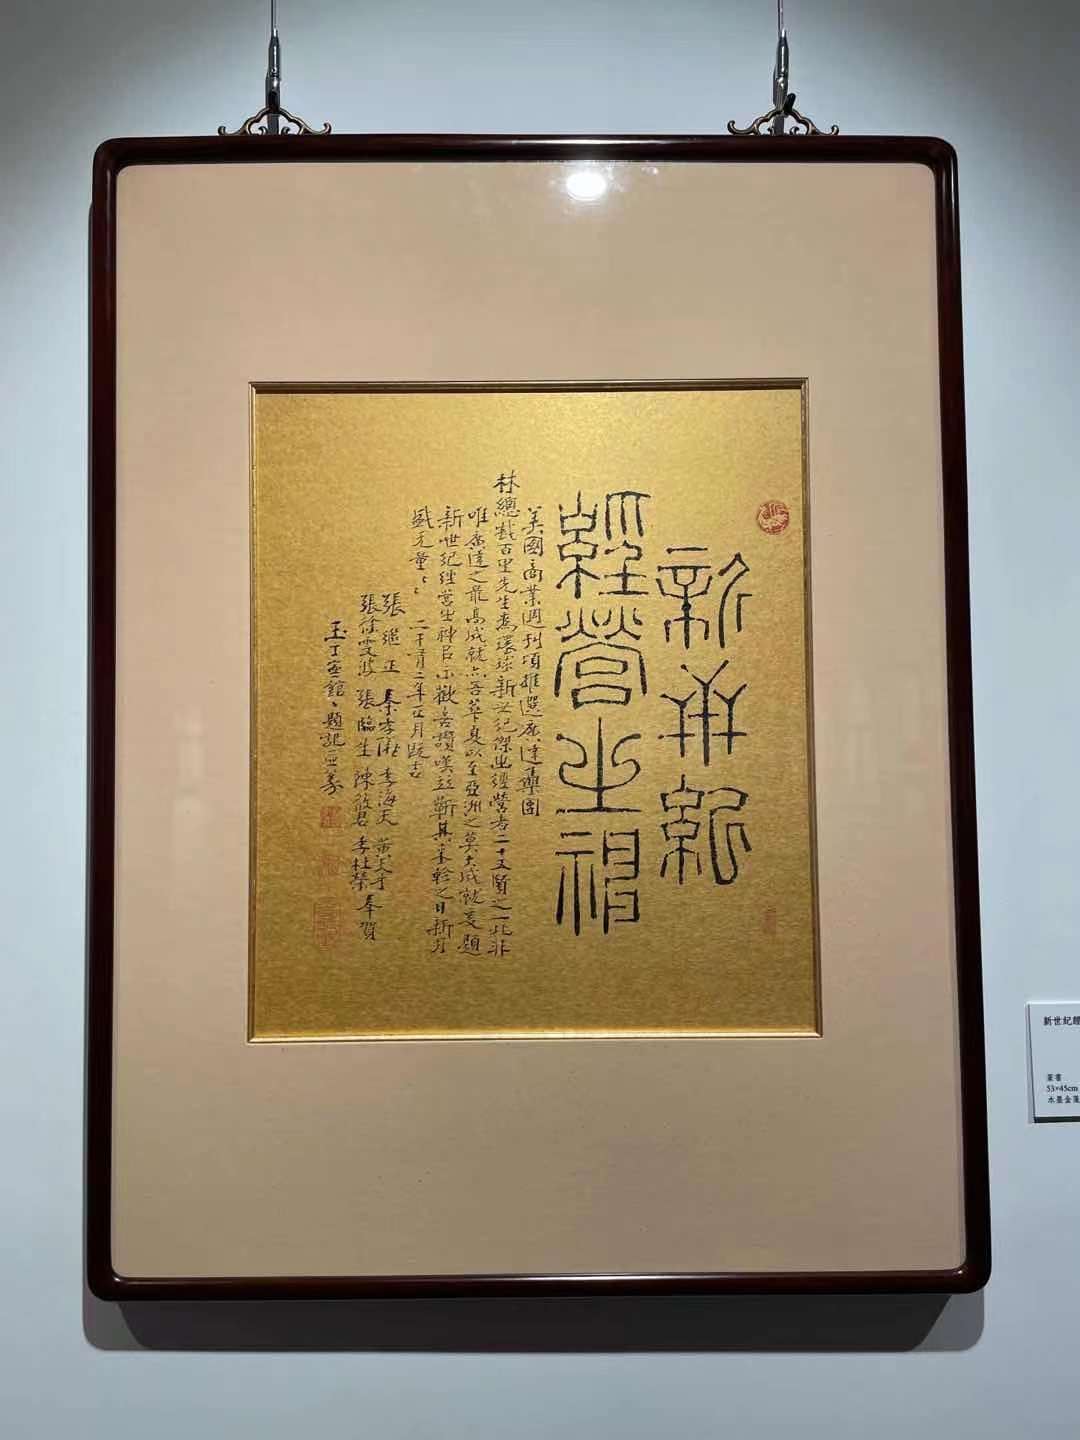 新世紀
經營之神
美國商業週刊項推選廣達集團
林總裁百里先生為環球新世紀傑出經營者二十五賢之一此非
唯廣達之最高成就亦吾華夏以至亞洲之莫大成就爰題
新世紀經營之神以歡喜讚嘆並蘄其來軫之日新月
盛无量
二千〇二年五月既吉
張繼正 秦孝儀 李海天 黃天才
張徐雯波 張臨生 陳筱君 李杜榮 奉賀
玉丁寧館 題記並篆
新世紀經
篆書
53×45cm
水墨金箋